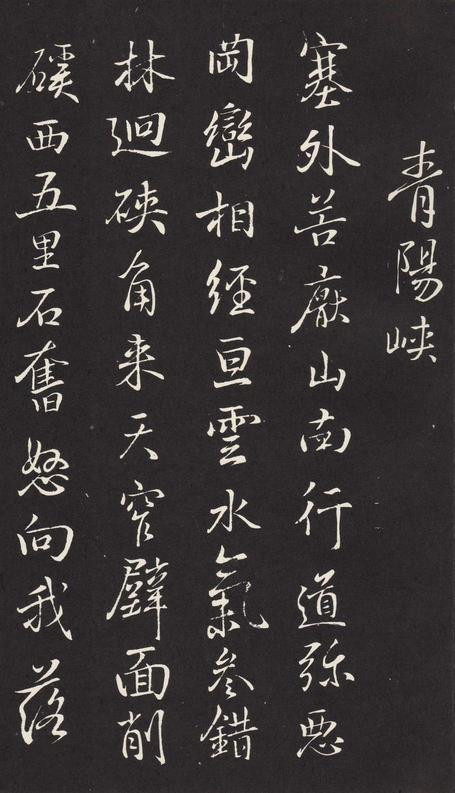 青陽峽
塞外苦厭山南行道彌惡
岡巒相經亘雲水氣參錯
林迥硤角来天窄壁面削
磎西五里石奮怒向我落